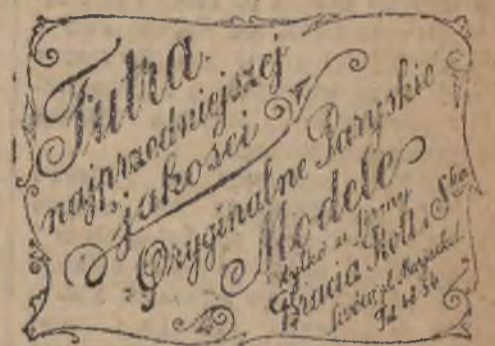 Futra
najprzedniejszej
jakości
Oryginalne Paryskie
Modele
tylko u firmy
Bracia Kell i Ska
Lwów, pl. Maryacki
Tel. 48 56